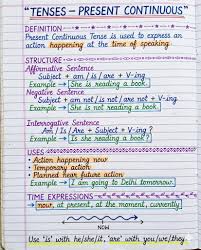 "TENSES – PRESENT CONTINUOUS"
DEFINITION
Present Continuous Tense is used to express an
action happening at the time of speaking.
STRUCTURE
Affirmative Sentence
Subject + am / is / are + V-ing
Example → She is reading a book.
Negative Sentence
Subject + am not / is not / are not + V-ing
Example → She is not reading a book.
Interrogative Sentence
Am / Is / Are + Subject + V-ing ?
Example → Is she reading a book?
USES
• Action happening now
• Temporary action
• Planned near future action
Example → I am going to Delhi tomorrow.
TIME EXPRESSIONS
→ now, at present, at the moment, currently
NOW
Use "is" with he/she/it, 'are' with you/we/they